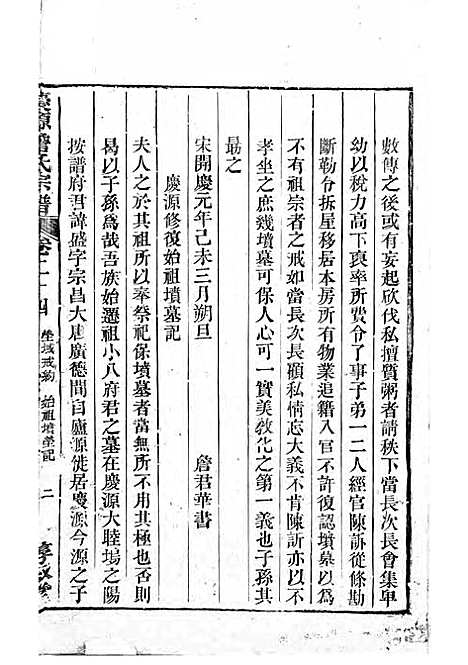 數傳之後或有妄起欣伐私擅質粥者請秩下當長次長會集卑
幼以稅力高下裒率所費令了事子弟一二人經官陳訴從條勘
斷勒令拆屋移居本房所有物業追籍入官不許復認墳墓以為
不有祖宗者之戒如當長次長顧私情忘大義不肯陳訴亦以不
孝坐之庶幾墳墓可保人心可一實美教化之第一義也子孫其
最之
宋開慶元年己未三月朔旦 詹君華書
慶源修復始祖墳墓記
夫人之於其祖所以奉祭祀保墳墓者當無所不用其極也否則
曷以子孫為哉吾族始遷祖小八府君之墓在慶源大睦塢之陽
按譜府君諱盛字宗昌大唐廣德間自廬源徙居慶源今源之子
慶源詹氏宗譜 卷二十四 塋域戒約 始祖墳墓記 二